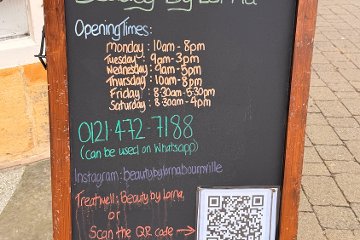 Beauty By Lorna
Opening Times:
Monday: 10am - 8pm
Tuesday: 9am-3pm
Wednesday: 9am-5pm
Thursday: 10am-8pm
Friday: 8:30am-5:30pm
Saturday: 8:30am-4pm
0121-472-7188
(can be used on Whatsapp)
Instagram: beautybylornabournville
Treatwell: Beauty by Lorna
or
Scan the QR code